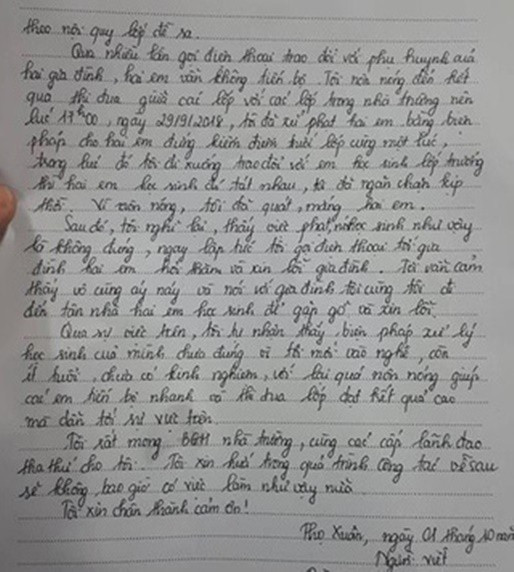 theo nội quy lớp đề ra.
Qua nhiều lần gọi điện thoại trao đổi với phụ huynh quả
hai gia đình, hai em vẫn không tiến bộ. Tôi nóng đến kết
quả thi đua giữa các lớp với các lớp trong nhà trường nên
lúc 17h00, ngày 29/9/2018, tôi đã xử phạt hai em bằng biện
pháp cho hai em đứng kiểm điểm trước lớp cùng một lúc,
trong lúc đó tôi đi xuống trao đổi với em học sinh lớp trưởng
thì hai em học sinh đó tát nhau, tôi đã ngăn chặn kịp
thời. Vì nôn nóng, tôi đã quát, mắng hai em.
Sau đó, tôi nghĩ lại, thấy việc phạt học sinh như vậy
là không đúng, ngay lập tức tôi gọi điện thoại tới gia
đình hai em hỏi thăm và xin lỗi gia đình. Tôi vẫn cảm
thấy vô cùng áy náy và nói với gia đình tôi cùng tôi đi
đến tận nhà hai em học sinh để gặp gỡ và xin lỗi.
Qua sự việc trên, tôi tự nhận thấy, biện pháp xử lý
học sinh của mình chưa đúng vì tôi mới vào nghề, còn
ít tuổi, chưa có kinh nghiệm, với lại quá nôn nóng giúp
các em tiến bộ nhanh và thi đua lớp đạt kết quả cao
mà dẫn tới sự việc trên.
Tôi rất mong BGH nhà trường, cùng các cấp lãnh đạo
tha thứ cho tôi. Tôi xin hứa trong quá trình công tác về sau
sẽ không bao giờ có việc làm như vậy nữa.
Tôi xin chân thành cảm ơn!
Thọ Xuân, ngày 01 tháng 10 năm
Người viết